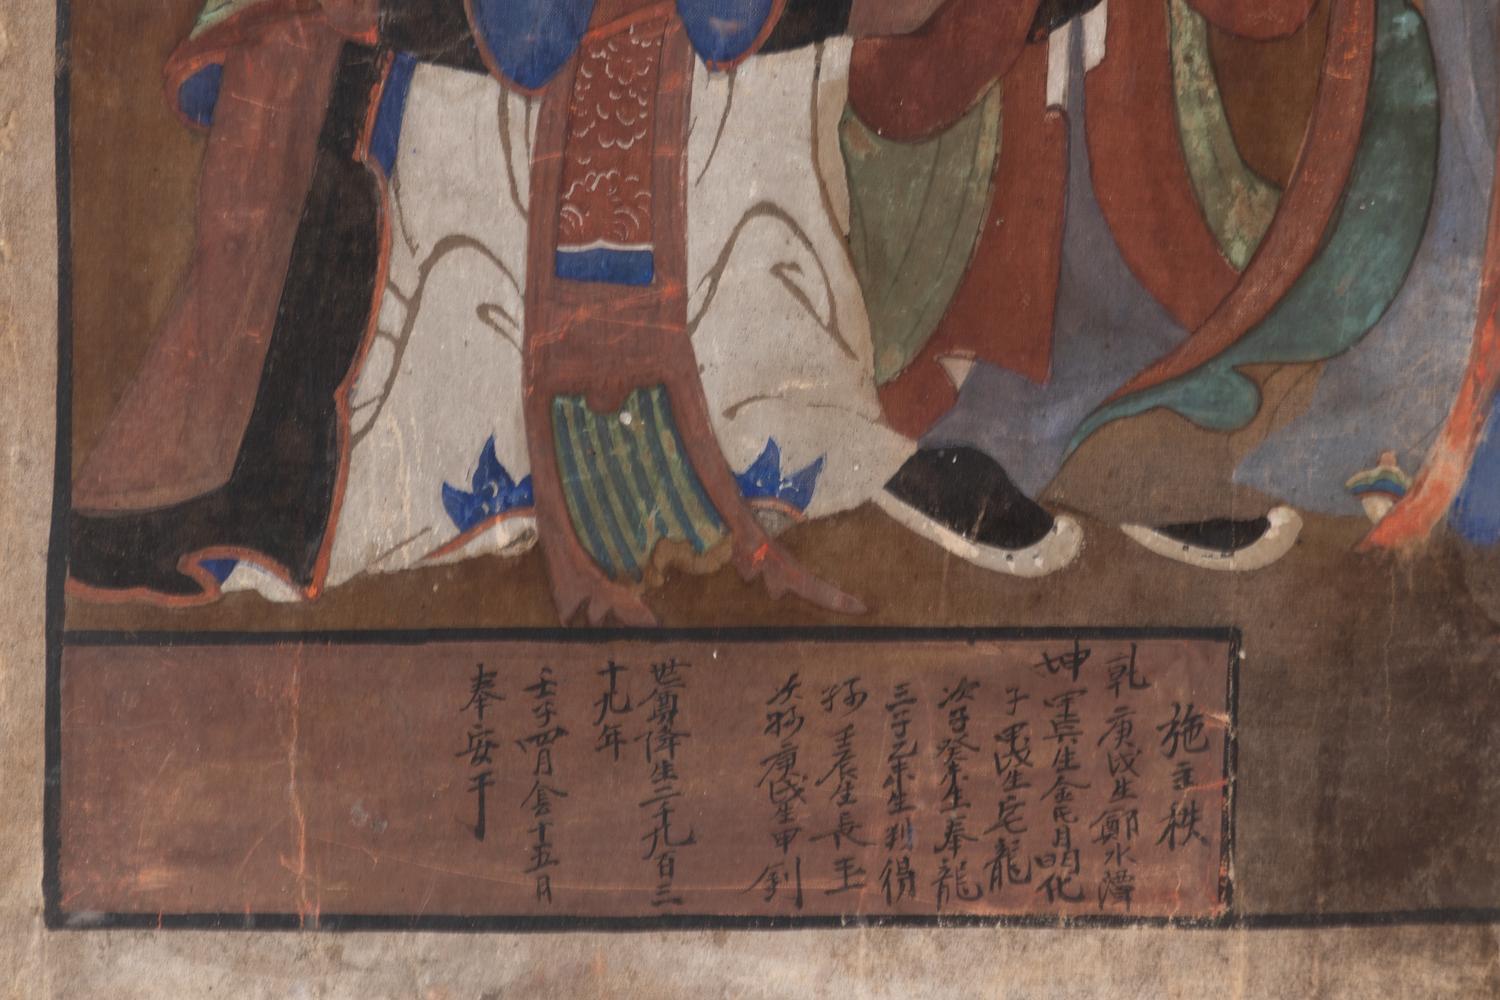 施主秩
乾 庚戌生鄭水潭
坤 甲寅生金氏月明化
子 甲戌生宅龍
次子癸未生奉龍
三子乙未生判得
孫 壬辰生長玉
次孫庚戌生甲釗
世尊降生二千九百三
十九年
壬子四月念十五日
奉安于